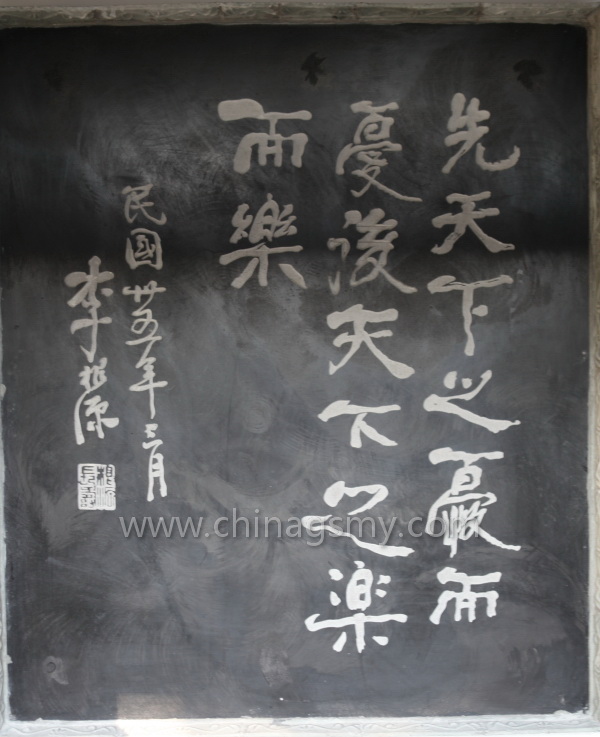 先天下之憂而
憂後天下之楽
而樂
民國廿五年三月
李根源
www.chinagsmy.co